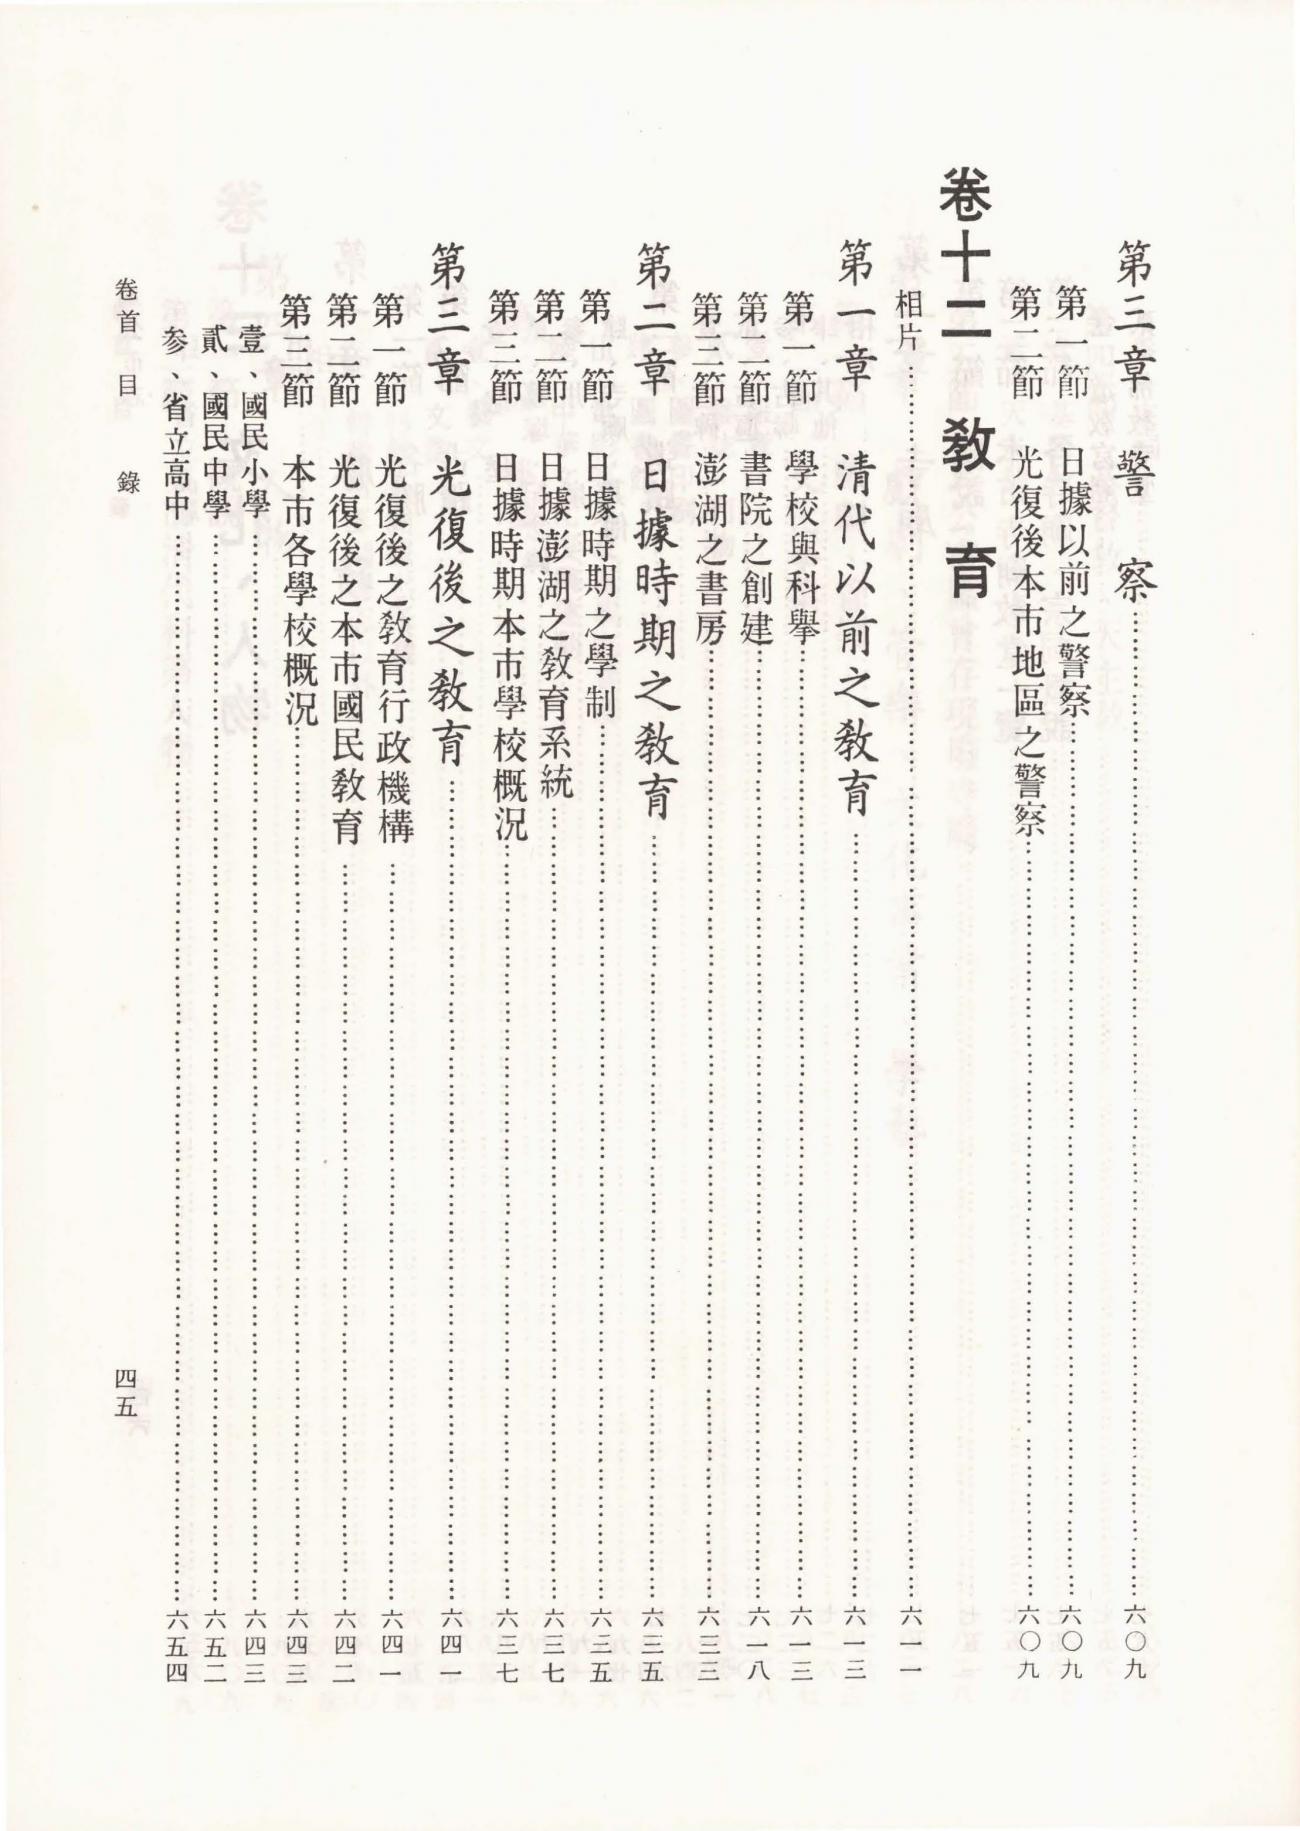 第三章　警　察……六〇九
第一節　日據以前之警察……六〇九
第二節　光復後本市地區之警察……六〇九
卷十二　教　育
相片……六一一
第一章　清代以前之教育……六一三
第一節　學校與科舉……六一三
第二節　書院之創建……六一八
第三節　澎湖之書房……六三三
第二章　日據時期之教育……六三五
第一節　日據時期之學制……六三五
第二節　日據澎湖之教育系統……六三七
第三節　日據時期本市學校概況……六三七
第三章　光復後之教育……六四一
第一節　光復後之教育行政機構……六四一
第二節　光復後之本市國民教育……六四二
第三節　本市各學校概況……六四三
壹、國民小學……六四三
貳、國民中學……六五二
參、省立高中……六五四
卷首　目　錄
四五